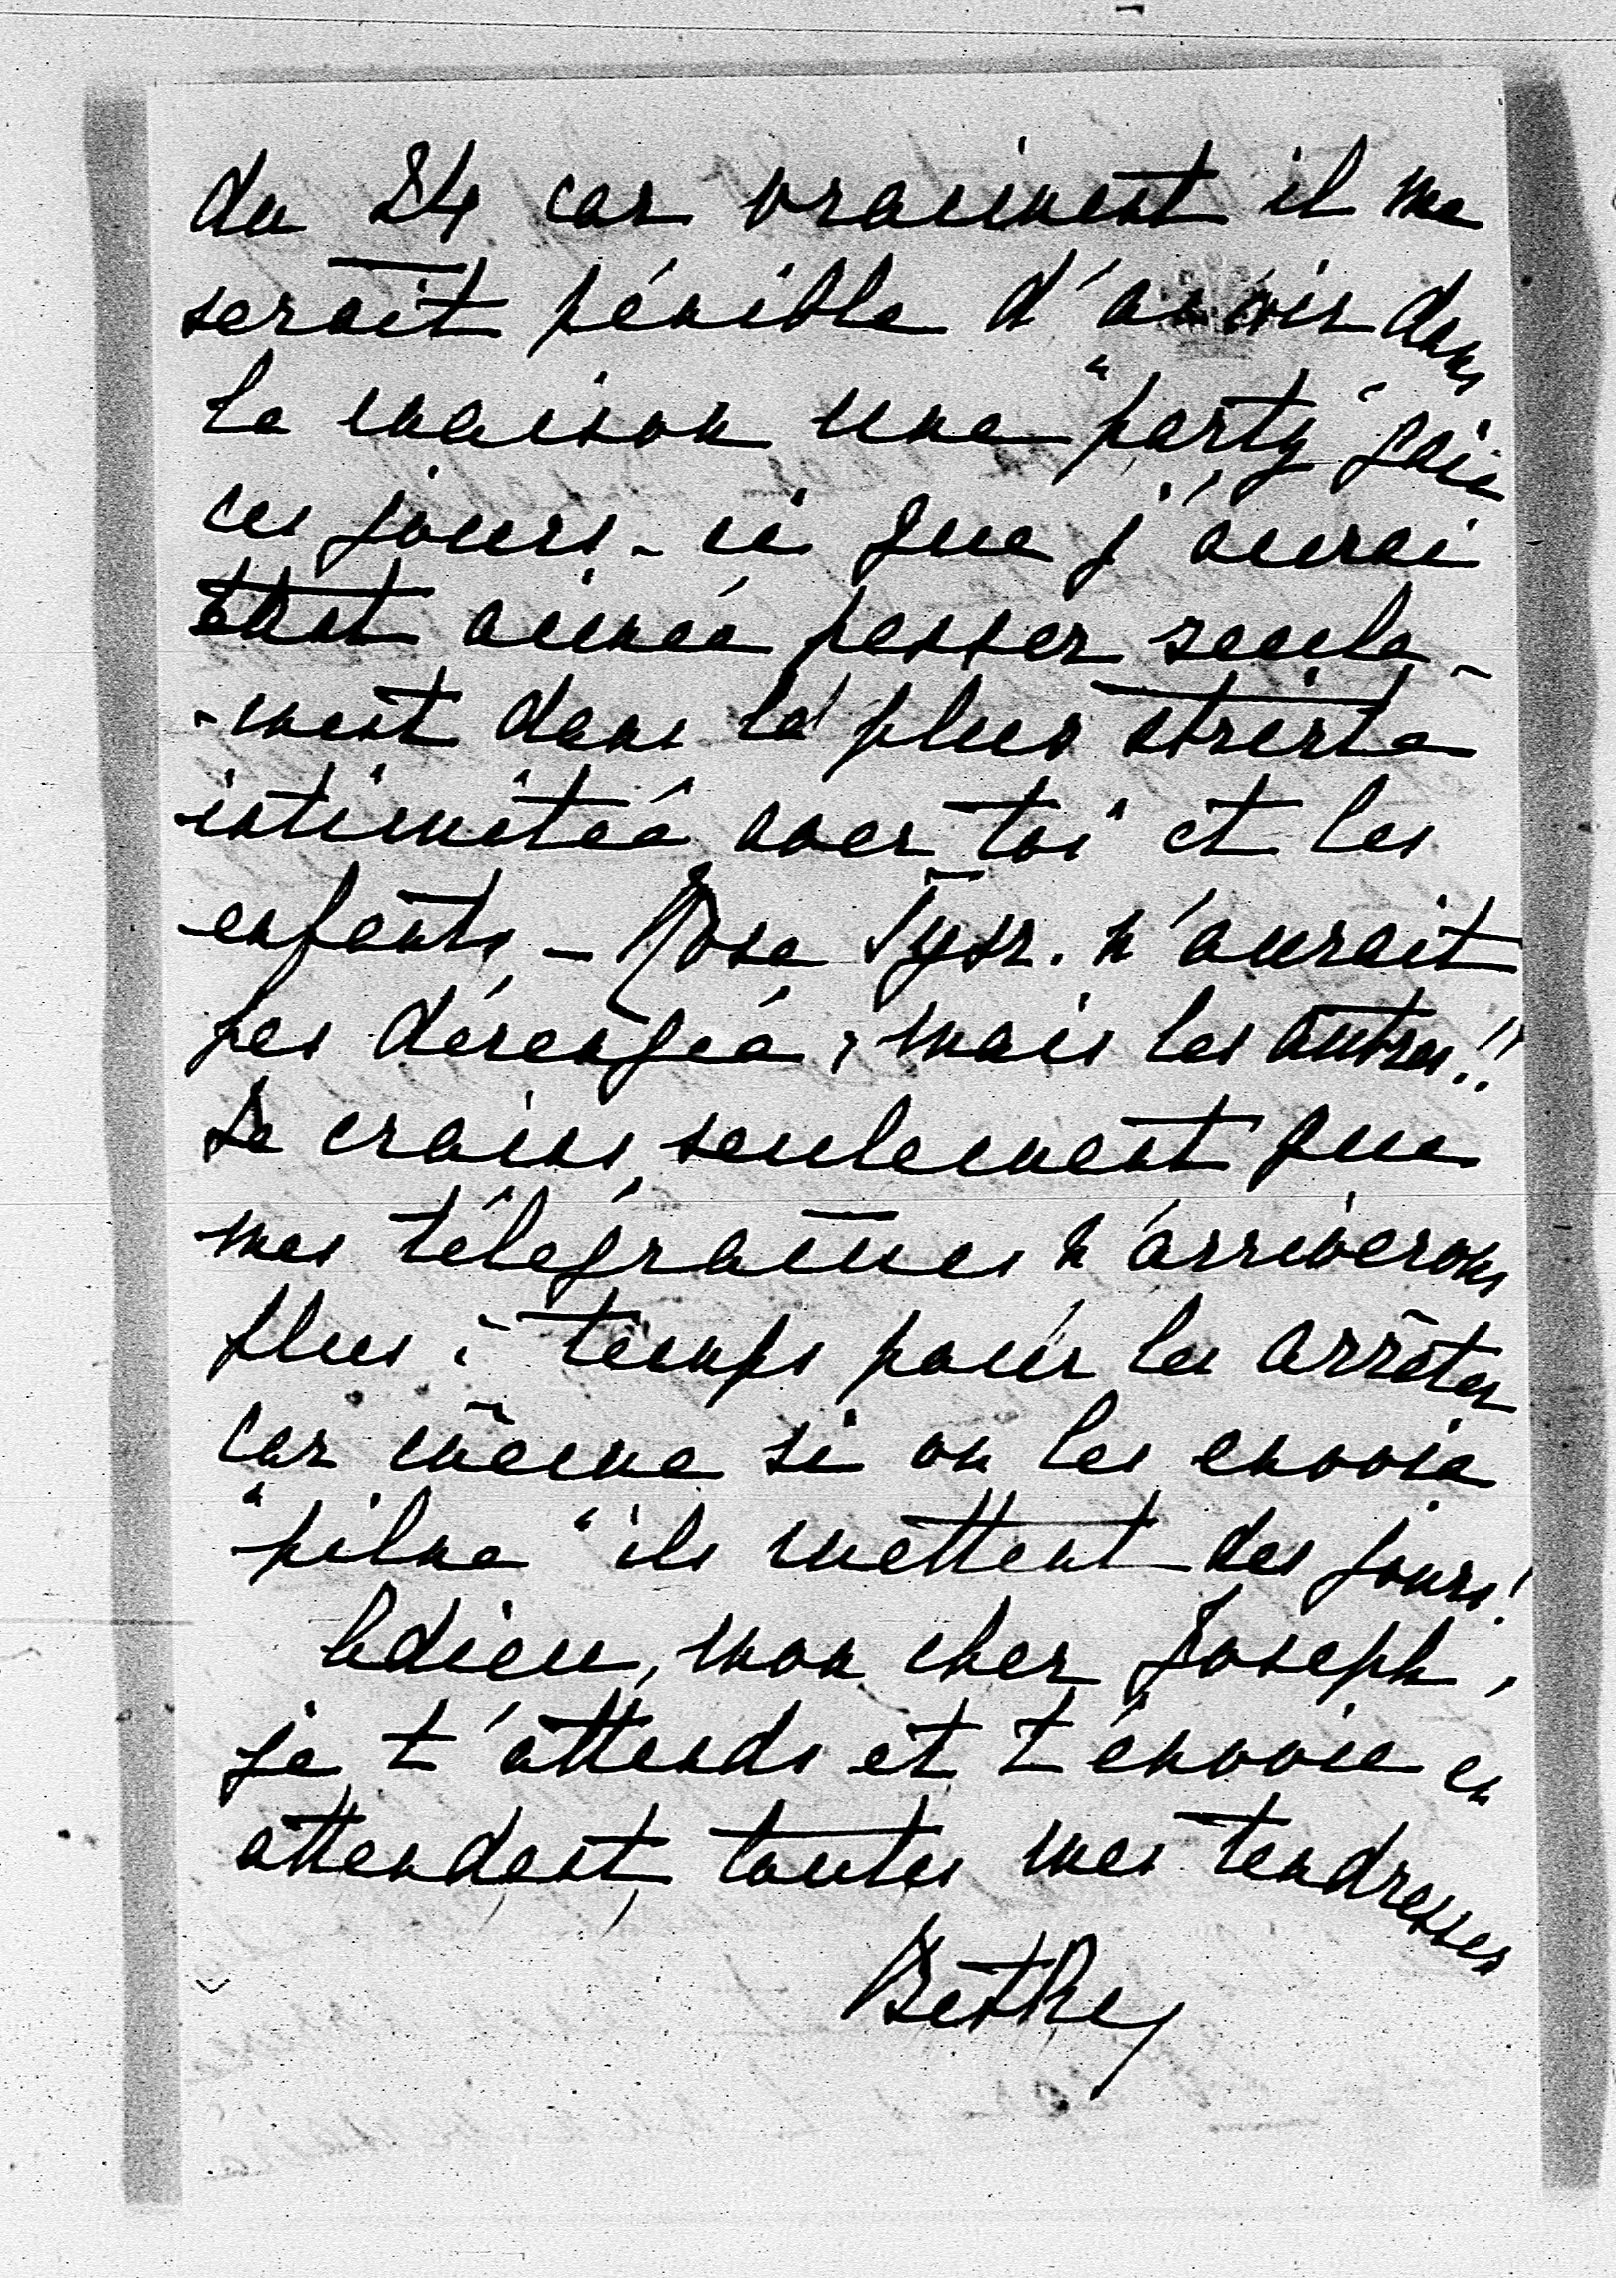 du 24 car vraiment il me
serait pénible d'avoir dans
la maison une "party" gaie
ces jours-ci que j'aurai
tant aimée passer seule-
-ment dans la plus stricte
intimitée avec toi et les
enfants, - Rosa Tysz. n'aurait
pas dérangée, mais les autres!!
Je crains seulement que
mes télégrames n'arriverons
plus à temps pour les arrêter
car même si on les envoie
"pilne" ils mettent des jours!
Adieu, mon cher Joseph,
je t'attends et t'envoie en
attendant toutes mes tendresses
Bethe